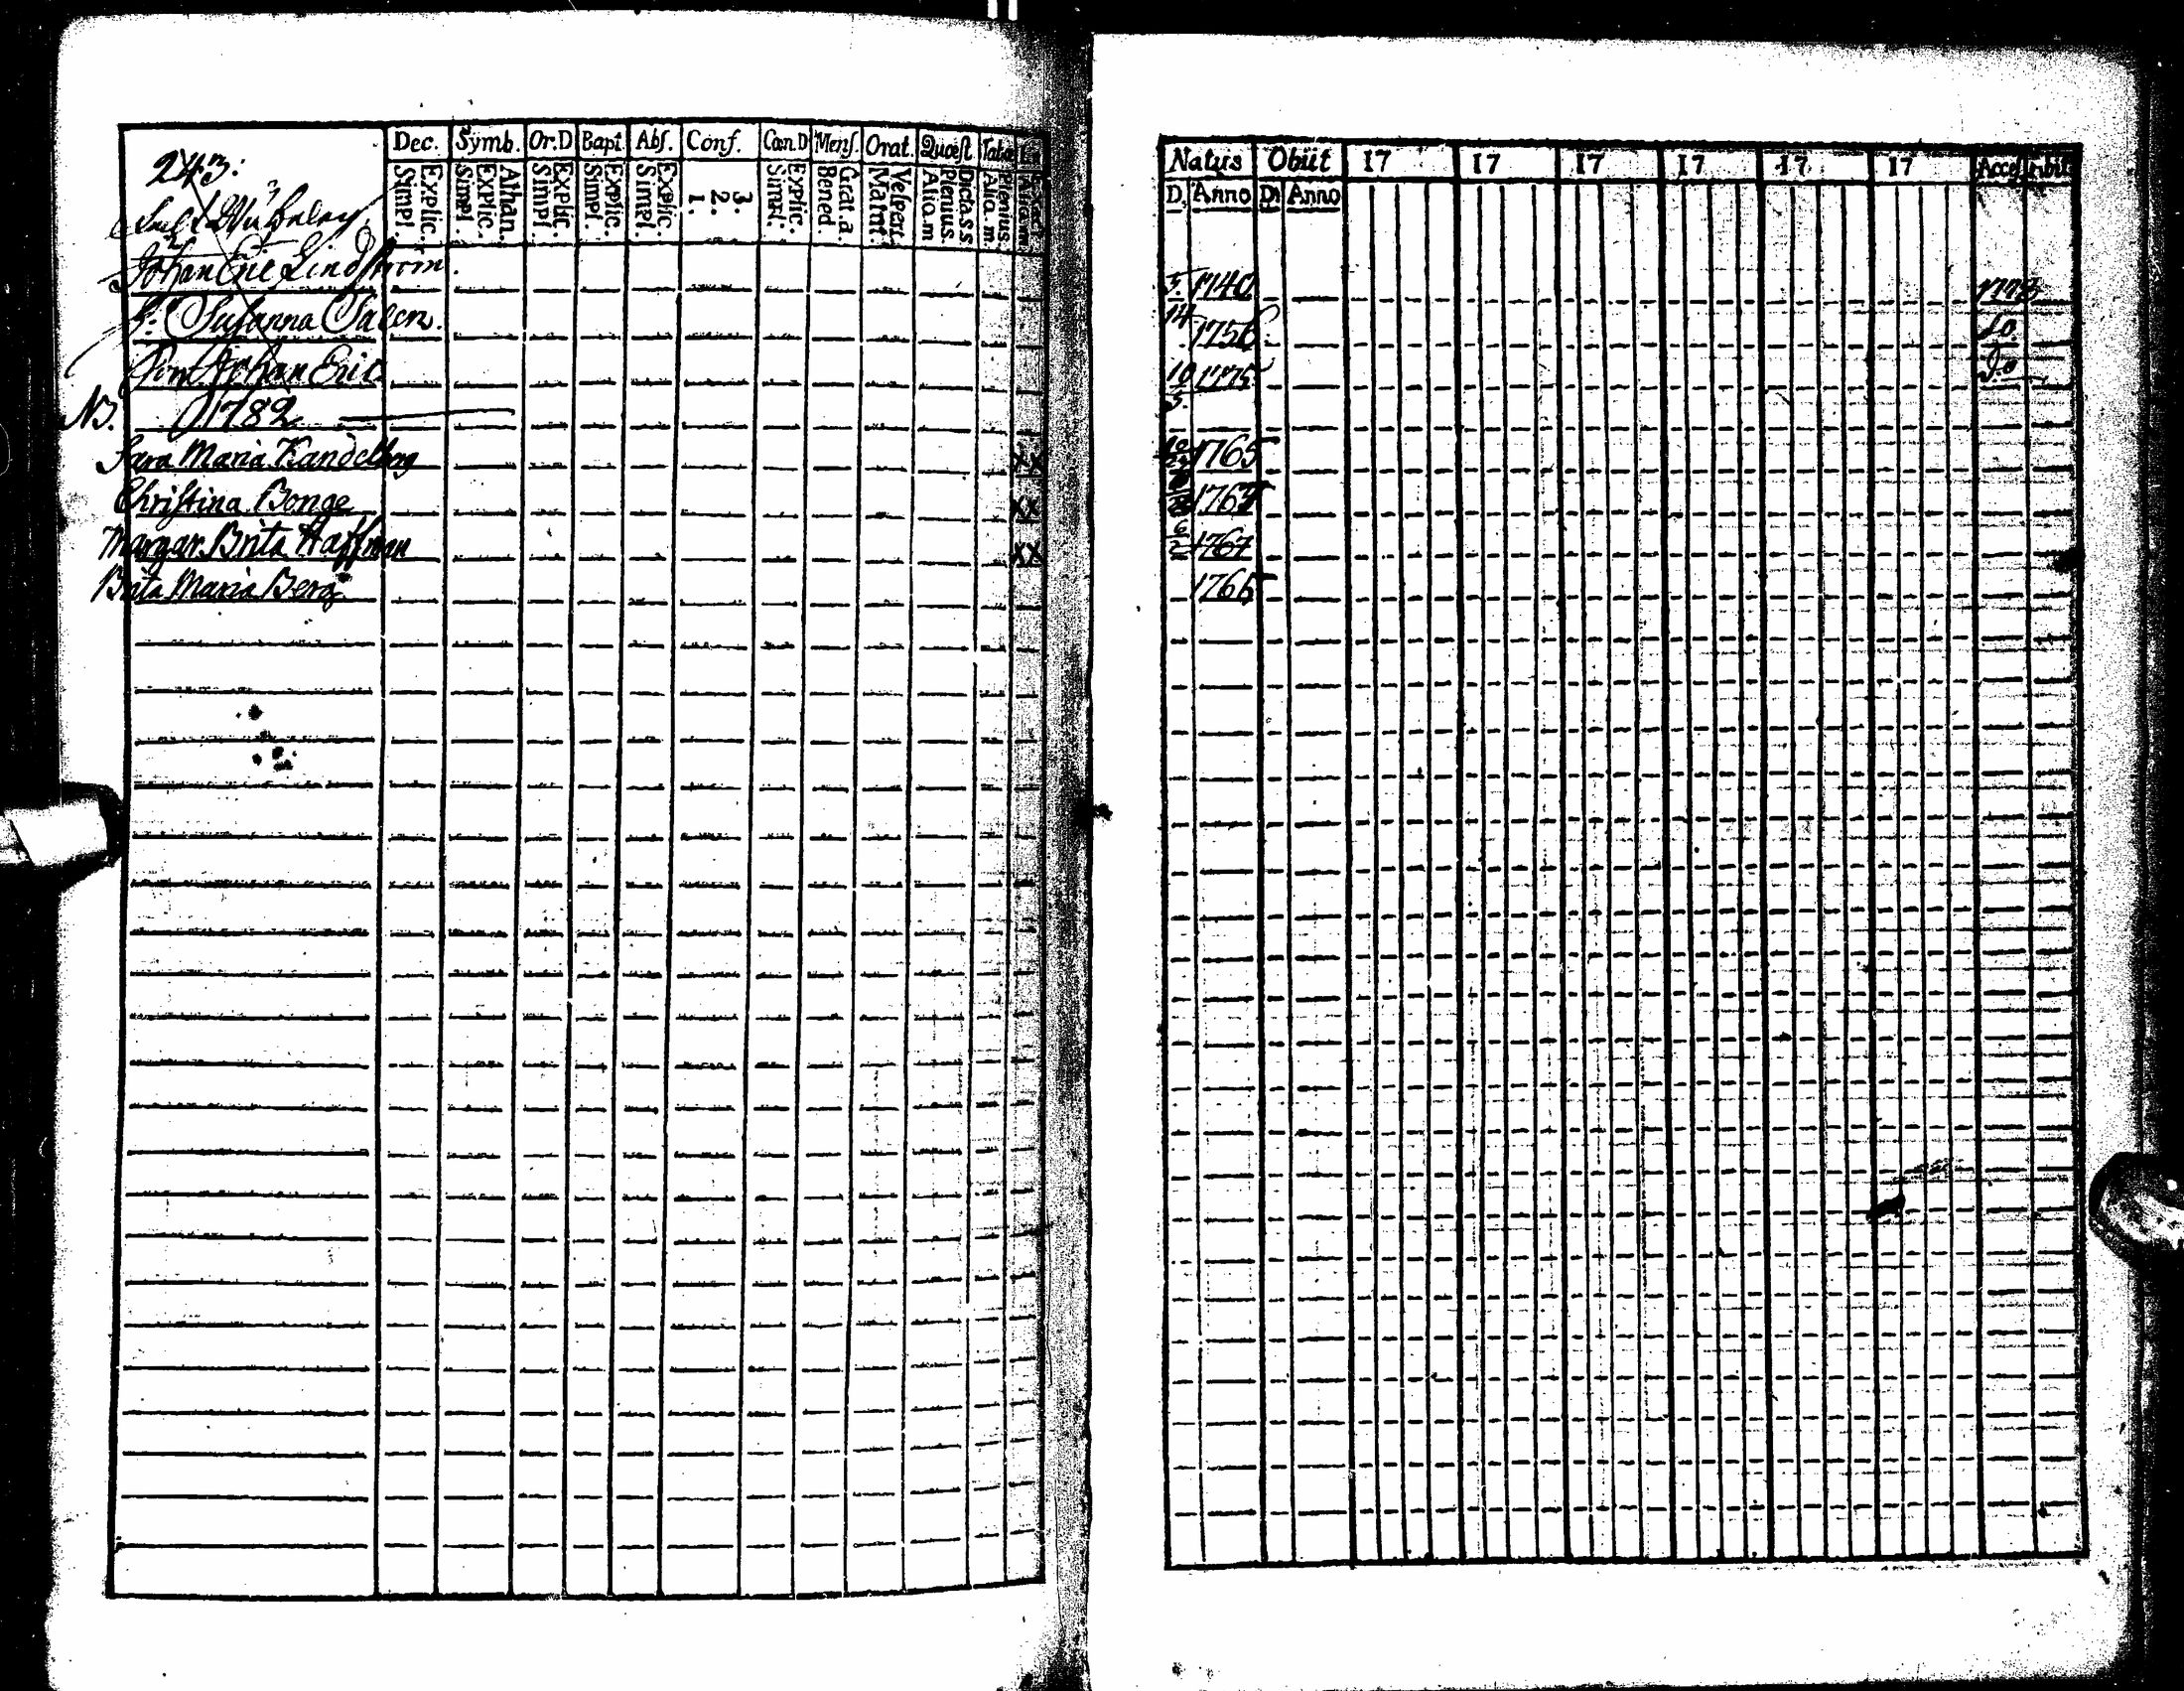 243:
Dec. Symb. Or.D Bapt. Abſ. Conf. Cœn.D Menſ. Orat. Quæſt. Tabæ
Explic. Simpl. Athan. Explic. Simpl. Explic. Simpl. Explic. Simpl. Explic. Simpl. 3. 2. 1. Explic. Simpl. Grat. a. Bened. Veſpert. Matut. Dicta. s.s. Plenius. Alio. m. Plenius. Alio. m.
Johan Eric Lindſtrom.
H: Suſanna Salen.
Johan Eric
NB. 1782
Sara Maria Kandelberg
Chriſtina Bonge
Margar. Brita Haffman
Brita Maria Berg
XX
XX
XX
Natus Obiit 17 17 17 17 17 17 Acceſ Abit
D. Anno D. Anno
5. 1740 1778
14 1756 do.
10 5. 1775 do
1765
176
6 2 1767
1765